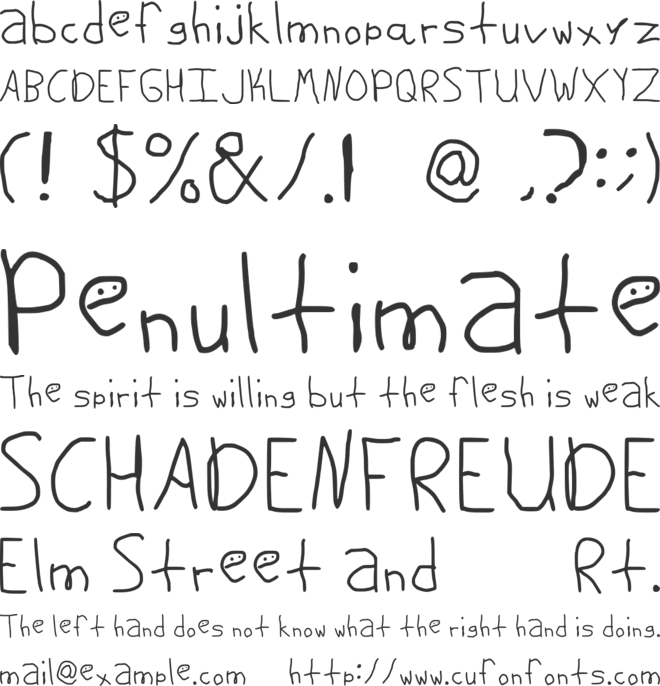 abcdefghijklmnopqrstuvwxyz
ABCDEFGHIJKLMNOPQRSTUVWXYZ
(! $%&/.! @ ,?:;)
Penultimate
The spirit is willing but the flesh is weak
SCHADENFREUDE
Elm Street and Rt.
The left hand does not know what the right hand is doing.
mail@example.com http://www.cufonfonts.com